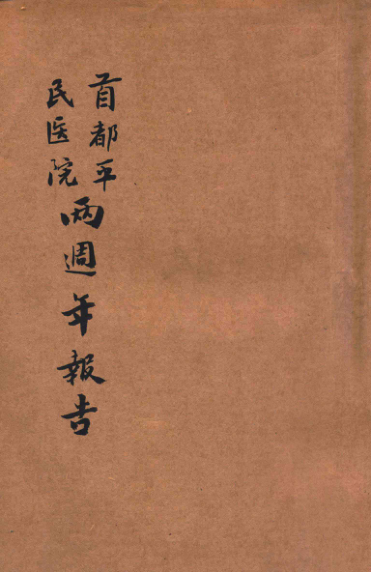 首都平
民医院
兩週年報告